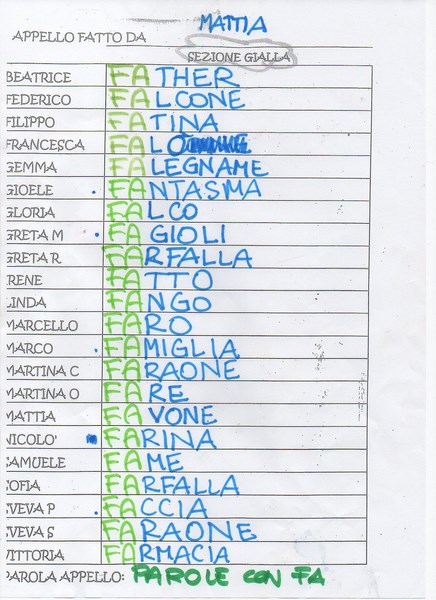 MATTIA
APPELLO FATTO DA
SEZIONE GIALLA
BEATRICE FATHER
FEDERICO FALCONE
FILIPPO FATINA
FRANCESCA FALO
GEMMA FALEGNAME
GIOELE FANTASMA
GLORIA FALCO
GRETA M FAGIOLI
GRETA R FARFALLA
RENE FATTO
LINDA FANGO
MARCELLO FARO
MARCO FAMIGLIA
MARTINA C FARAONE
MARTINA O FARE
MATTIA FAVONE
NICOLO' FARINA
SAMUELE FAME
SOFIA FARFALLA
SVEVA P FACCIA
SVEVA S FARAONE
VITTORIA FARMACIA
PAROLA APPELLO: PAROLE CON FA